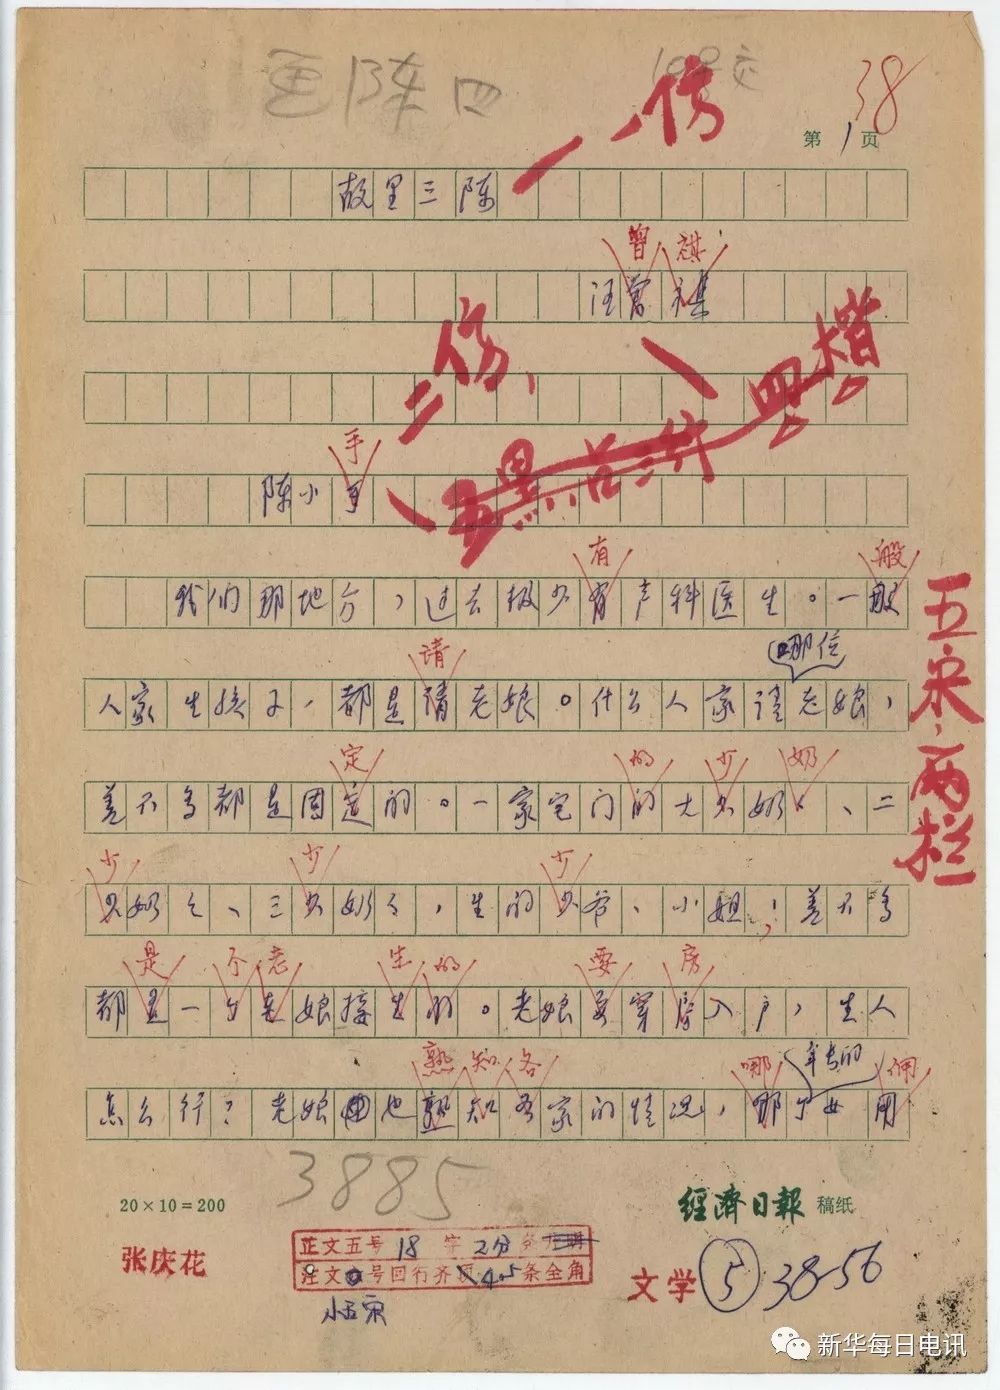 38
第1页
一仿
故里三陈
曾 祺
汪曾祺
二仿、
四楷
手
陈小手
有 般
我们那地方，过去极少有产科医生。一般
请 哪位
人家生孩子，都是请老娘。什么人家请老娘，
定 的 少 奶
差不多都是固定的。一家宅门的大少奶奶、二
少 少 少
少奶奶、三少奶奶，生的少爷、小姐，差不多
是 个 老 生 的 要 房
都是一个老娘接生的。老娘要穿房入户，生人
熟 知 各 哪 年长的 佣
怎么行？老娘也熟知各家的情况，哪个女佣
五宋、两栏
3885
20×10=200
經濟日報 稿纸
张庆花
正文五号 18 字 2分
注文 号回行齐 45条全角
小五宋
文学 ⑤ 38-56
新华每日电讯